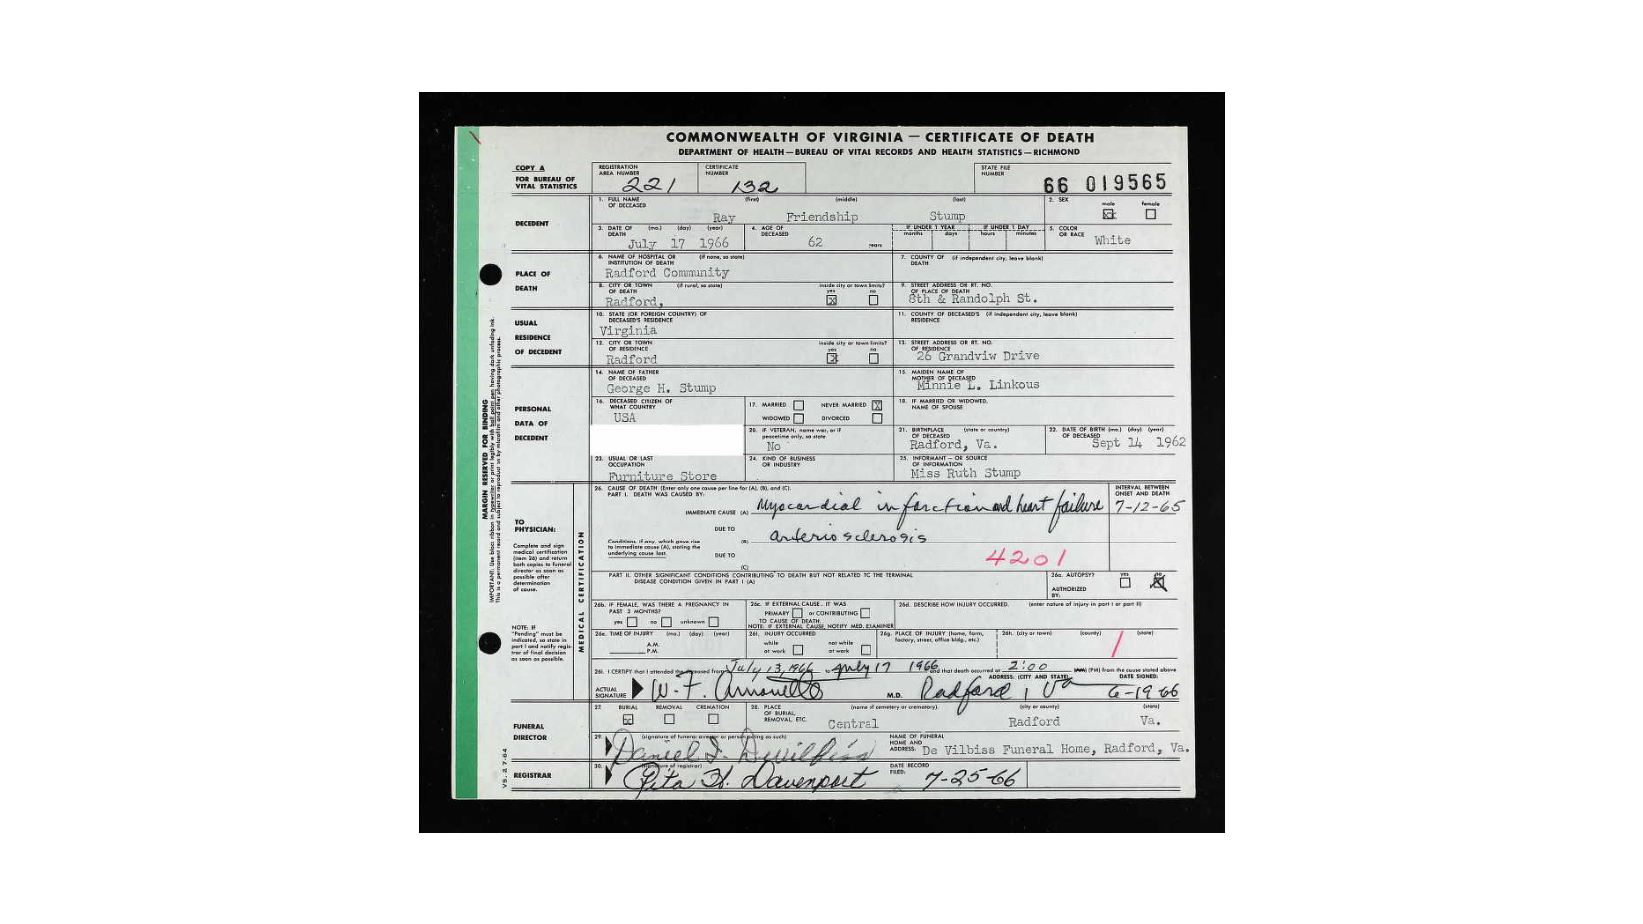 COMMONWEALTH OF VIRGINIA — CERTIFICATE OF DEATH
DEPARTMENT OF HEALTH—BUREAU OF VITAL RECORDS AND HEALTH STATISTICS—RICHMOND
COPY A
FOR BUREAU OF
VITAL STATISTICS
REGISTRATION
AREA NUMBER
221
CERTIFICATE
NUMBER
132
STATE FILE
NUMBER
66 019565
DECEDENT
1. FULL NAME
OF DECEASED
(first) (middle) (last)
Ray Friendship Stump
2. SEX
male female
3. DATE OF (mo.) (day) (year)
DEATH
July 17 1966
4. AGE OF
DECEASED
62 years
IF UNDER 1 YEAR
months days
IF UNDER 1 DAY
hours minutes
5. COLOR
OR RACE
White
PLACE OF
DEATH
6. NAME OF HOSPITAL OR (if none, so state)
INSTITUTION OF DEATH
Radford Community
7. COUNTY OF (if independent city, leave blank)
DEATH
8. CITY OR TOWN (if rural, so state)
OF DEATH
Radford,
inside city or town limits?
yes no
9. STREET ADDRESS OR RT. NO.
OF PLACE OF DEATH
8th & Randolph St.
USUAL
RESIDENCE
OF DECEDENT
10. STATE (OR FOREIGN COUNTRY) OF
DECEASED'S RESIDENCE
Virginia
11. COUNTY OF DECEASED'S (if independent city, leave blank)
RESIDENCE
12. CITY OR TOWN
OF RESIDENCE
Radford
inside city or town limits?
yes no
13. STREET ADDRESS OR RT. NO.
OF RESIDENCE
26 Grandviw Drive
PERSONAL
DATA OF
DECEDENT
14. NAME OF FATHER
OF DECEASED
George H. Stump
15. MAIDEN NAME OF
MOTHER OF DECEASED
Minnie L. Linkous
16. DECEASED CITIZEN OF
WHAT COUNTRY
USA
17. MARRIED NEVER MARRIED
WIDOWED DIVORCED
18. IF MARRIED OR WIDOWED,
NAME OF SPOUSE
20. IF VETERAN, name war, or if
peacetime only, so state
No
21. BIRTHPLACE (state or country)
OF DECEASED
Radford, Va.
22. DATE OF BIRTH (mo.) (day) (year)
OF DECEASED
Sept 14 1962
23. USUAL OR LAST
OCCUPATION
Furniture Store
24. KIND OF BUSINESS
OR INDUSTRY
25. INFORMANT — OR SOURCE
OF INFORMATION
Miss Ruth Stump
TO
PHYSICIAN:
Complete and sign
medical certification
(item 26) and return
both copies to funeral
director as soon as
possible after
determination
of cause.
NOTE: If
"Pending" must be
indicated, so state in
part I and notify regis-
trar of final decision
as soon as possible.
MEDICAL CERTIFICATION
26. CAUSE OF DEATH (Enter only one cause per line for (A), (B), and (C).
PART I. DEATH WAS CAUSED BY:
INTERVAL BETWEEN
ONSET AND DEATH
IMMEDIATE CAUSE (A) Myocardial infarction and heart failure 7-12-65
DUE TO
(B) arteriosclerosis
Conditions, if any, which gave rise
to immediate cause (A), stating the
underlying cause last.
DUE TO
(C)
4201
PART II. OTHER SIGNIFICANT CONDITIONS CONTRIBUTING TO DEATH BUT NOT RELATED TO THE TERMINAL
DISEASE CONDITION GIVEN IN PART I (A)
26a. AUTOPSY? yes no
AUTHORIZED
BY:
26b. IF FEMALE, WAS THERE A PREGNANCY IN
PAST 3 MONTHS?
yes no unknown
26c. IF EXTERNAL CAUSE, IT WAS
PRIMARY or CONTRIBUTING
TO CAUSE OF DEATH
NOTE: IF EXTERNAL CAUSE, NOTIFY MED. EXAMINER
26d. DESCRIBE HOW INJURY OCCURRED. (enter nature of injury in part I or part II)
26e. TIME OF INJURY (mo.) (day) (year)
A.M.
P.M.
26f. INJURY OCCURRED
while not while
at work at work
26g. PLACE OF INJURY (home, farm,
factory, street, office bldg., etc.)
26h. (city or town) (county) (state)
26i. I CERTIFY that I attended the deceased from July 13, 1966 to July 17 1966 and that death occurred at 2:00 (AM) (PM) from the cause stated above
ADDRESS: (CITY AND STATE) DATE SIGNED:
ACTUAL
SIGNATURE
M.D. Radford, Va 6-19-66
FUNERAL
DIRECTOR
27. BURIAL REMOVAL CREMATION
28. PLACE
OF BURIAL,
REMOVAL, ETC.
(name of cemetery or crematory) (city or county) (state)
Central Radford Va.
29. (signature of funeral director or person acting as such)
Daniel I. DeVilbiss
NAME OF FUNERAL
HOME AND
ADDRESS: De Vilbiss Funeral Home, Radford, Va.
REGISTRAR
30. (signature of registrar)
Rita H. Davenport
DATE RECORD
FILED: 7-25-66
MARGIN RESERVED FOR BINDING
VS. 2 7-64